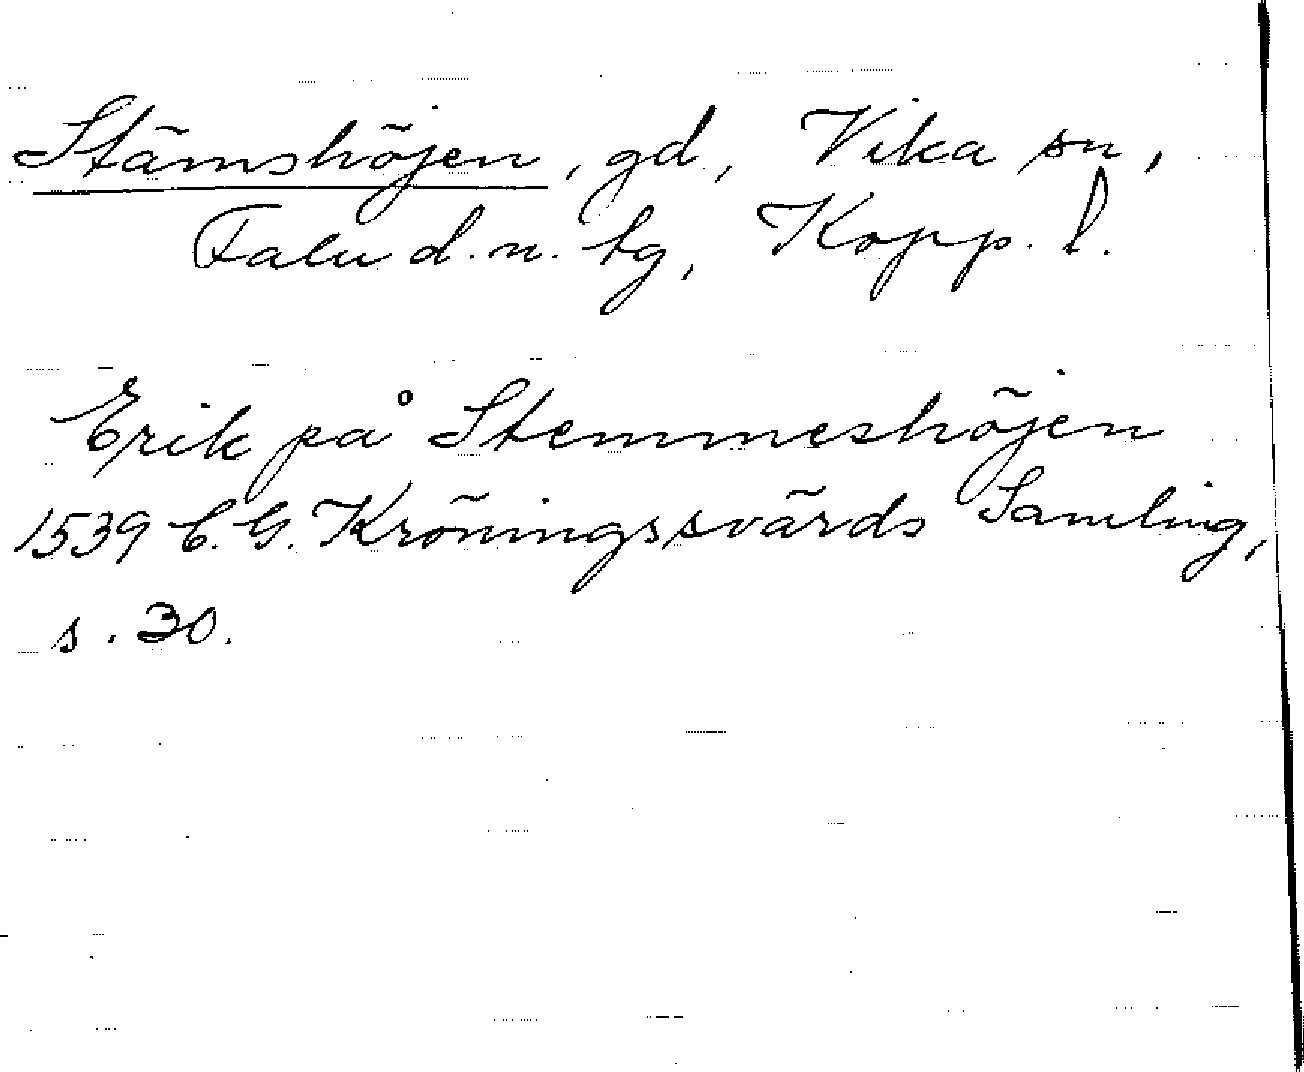 Stämshöjen, gd, Vika sn,
Falu d.n. tg, Kopp. l.
Erik på Stemmeshöjen
1539 C.G. Kröningssvärds Samling,
s. 30.